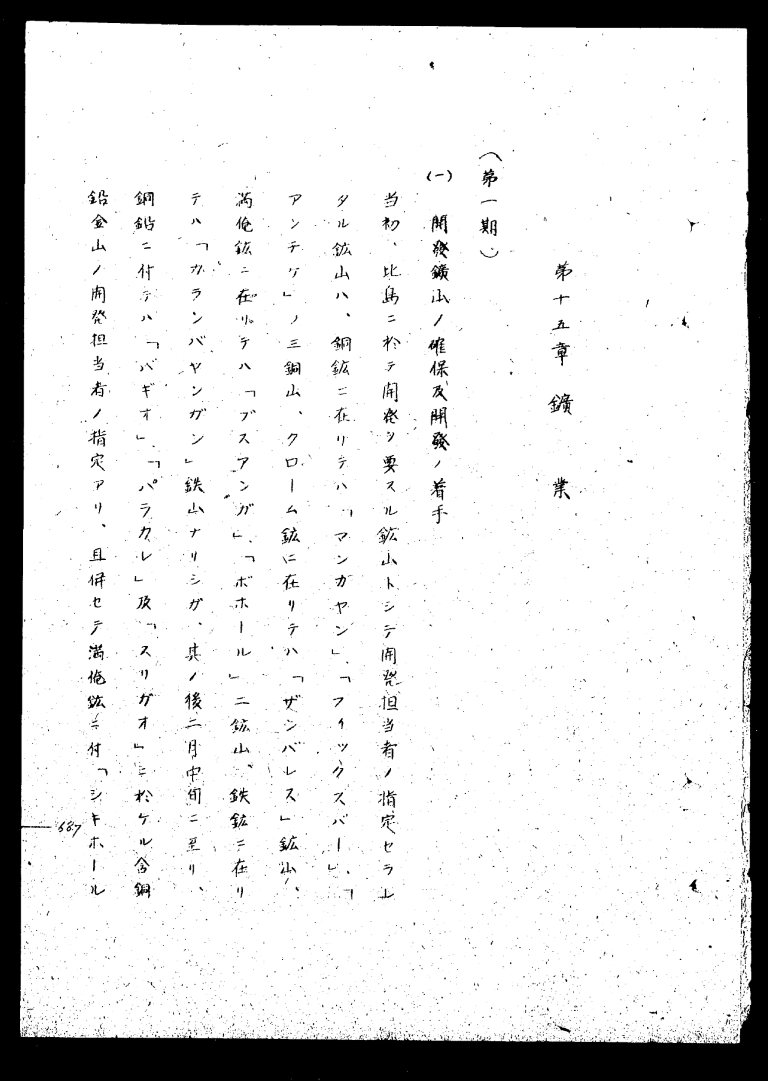 第十五章 鑛業
(第一期)
(一) 開發鑛山ノ確保及開發ノ着手
当初、比島ニ於テ開発ヲ要スル鉱山トシテ開発担当者ノ指定セラレ
タル鉱山ハ、銅鉱ニ在リテハ「マンカヤン」、「フイックスバー」、「
アンチケ」ノ三銅山、クローム鉱に在リテハ「ザンバレス」鉱山、
満俺鉱ニ在リテハ「ブスアンガ」、「ボホール」二鉱山、鉄鉱ニ在リ
テハ「カランバヤンガン」鉄山ナリシガ、其ノ後二月中旬ニ至リ、
銅鉛ニ付テハ「バギオ」、「パラカレ」及「スリガオ」ニ於ケル含銅
鉛金山ノ開発担当者ノ指定アリ、且併セテ満俺鉱ニ付「シキホール
687